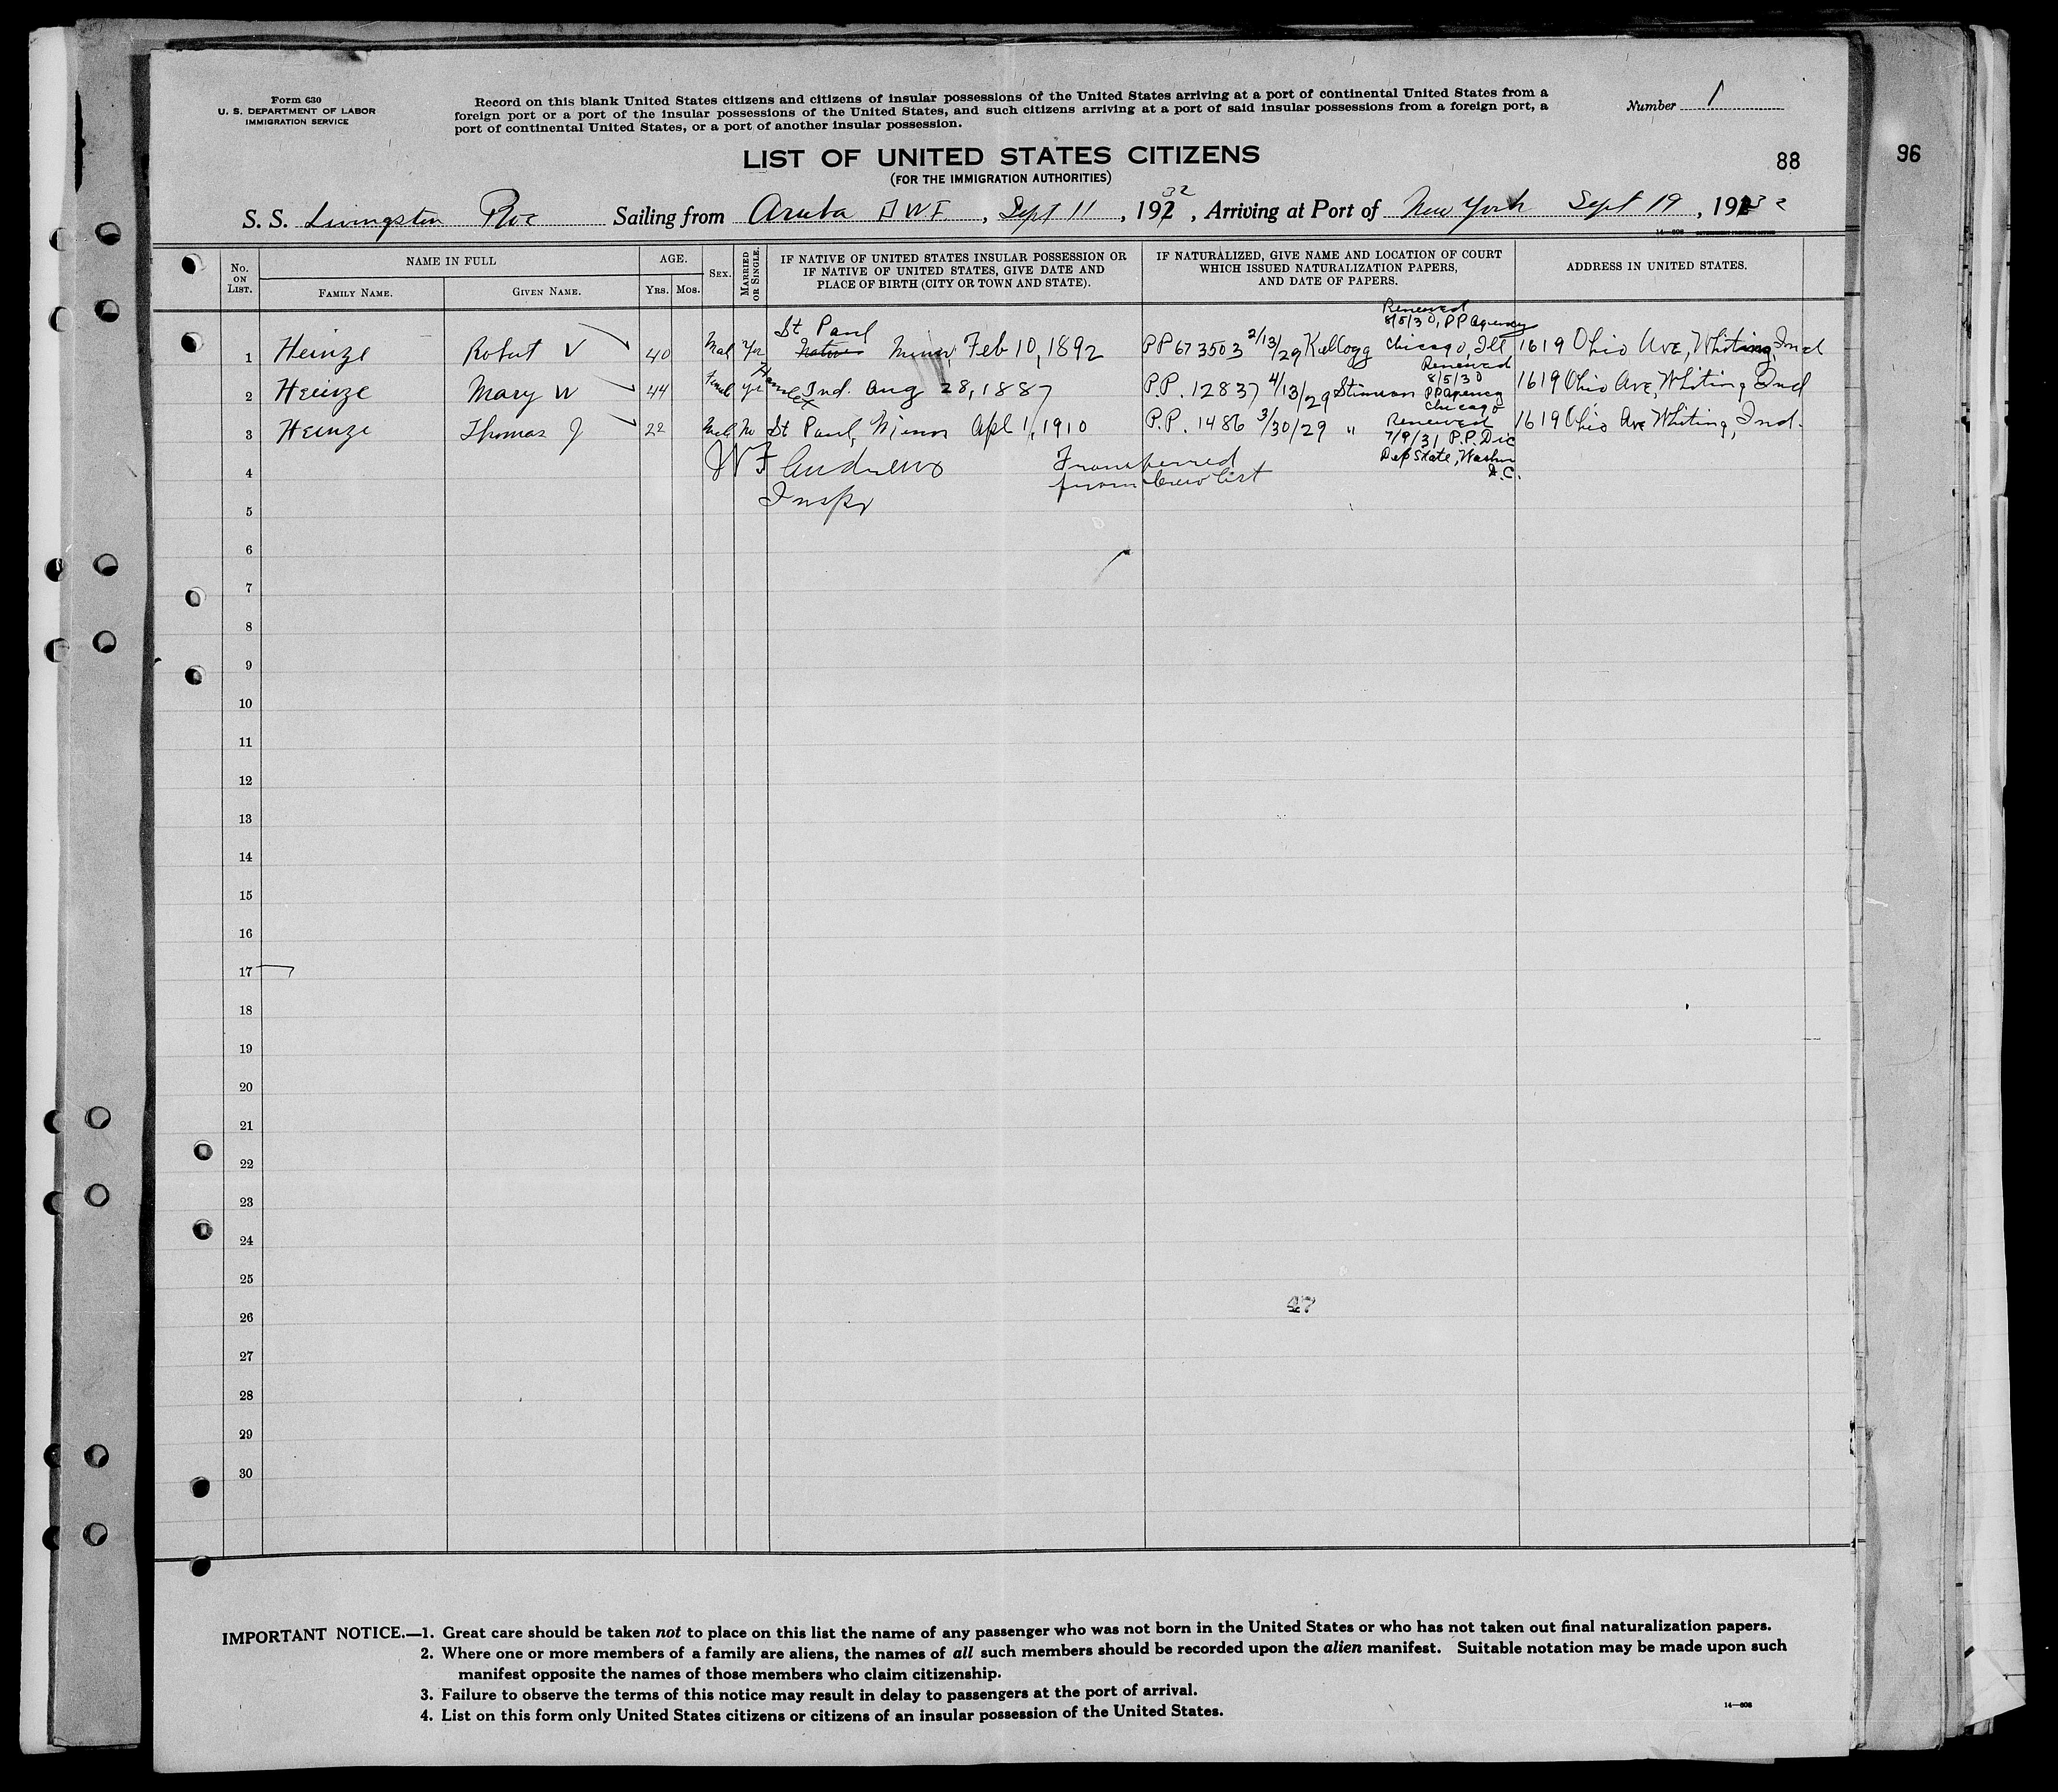 Form 630
U. S. DEPARTMENT OF LABOR
IMMIGRATION SERVICE
Record on this blank United States citizens and citizens of insular possessions of the United States arriving at a port of continental United States from a
foreign port or a port of the insular possessions of the United States, and such citizens arriving at a port of said insular possessions from a foreign port, a
port of continental United States, or a port of another insular possession.
Number 1
LIST OF UNITED STATES CITIZENS
(FOR THE IMMIGRATION AUTHORITIES)
88
96
S. S. Livingston Roe Sailing from Aruba DWI, Sept 11, 1932, Arriving at Port of New York Sept 19, 1932
No. ON LIST.
NAME IN FULL
FAMILY NAME.
GIVEN NAME.
AGE.
YRS. MOS.
SEX.
MARRIED OR SINGLE.
IF NATIVE OF UNITED STATES INSULAR POSSESSION OR
IF NATIVE OF UNITED STATES, GIVE DATE AND
PLACE OF BIRTH (CITY OR TOWN AND STATE).
IF NATURALIZED, GIVE NAME AND LOCATION OF COURT
WHICH ISSUED NATURALIZATION PAPERS,
AND DATE OF PAPERS.
ADDRESS IN UNITED STATES.
Renewed
8/5/30, PP Agency
St Paul
1 Heinze Robert V 40 Mal Yes Minn, Feb 10, 1892 PP 673503 2/13/29 Kellogg Chicago, Ill 1619 Ohio Ave, Whiting, Ind
Renewed
8/5/30
2 Heinze Mary W 44 Femal yes Ind. Aug 28, 1887 P.P. 12837 4/13/29 Stimson PP Agency 1619 Ohio Ave, Whiting Ind
Chicago
3 Heinze Thomas J 22 Mal No St Paul, Minn Apl 1, 1910 P.P. 1486 3/30/29 " Renewed 1619 Ohio Ave Whiting, Ind.
7/9/31 P.P. Div
Dep State, Washn
D.C.
4 W F Andrews Transferred
from Crew list
Inspr
5
6
7
8
9
10
11
12
13
14
15
16
17
18
19
20
21
22
23
24
25
47
26
27
28
29
30
IMPORTANT NOTICE.—1. Great care should be taken not to place on this list the name of any passenger who was not born in the United States or who has not taken out final naturalization papers.
2. Where one or more members of a family are aliens, the names of all such members should be recorded upon the alien manifest. Suitable notation may be made upon such
manifest opposite the names of those members who claim citizenship.
3. Failure to observe the terms of this notice may result in delay to passengers at the port of arrival.
4. List on this form only United States citizens or citizens of an insular possession of the United States.
14—608